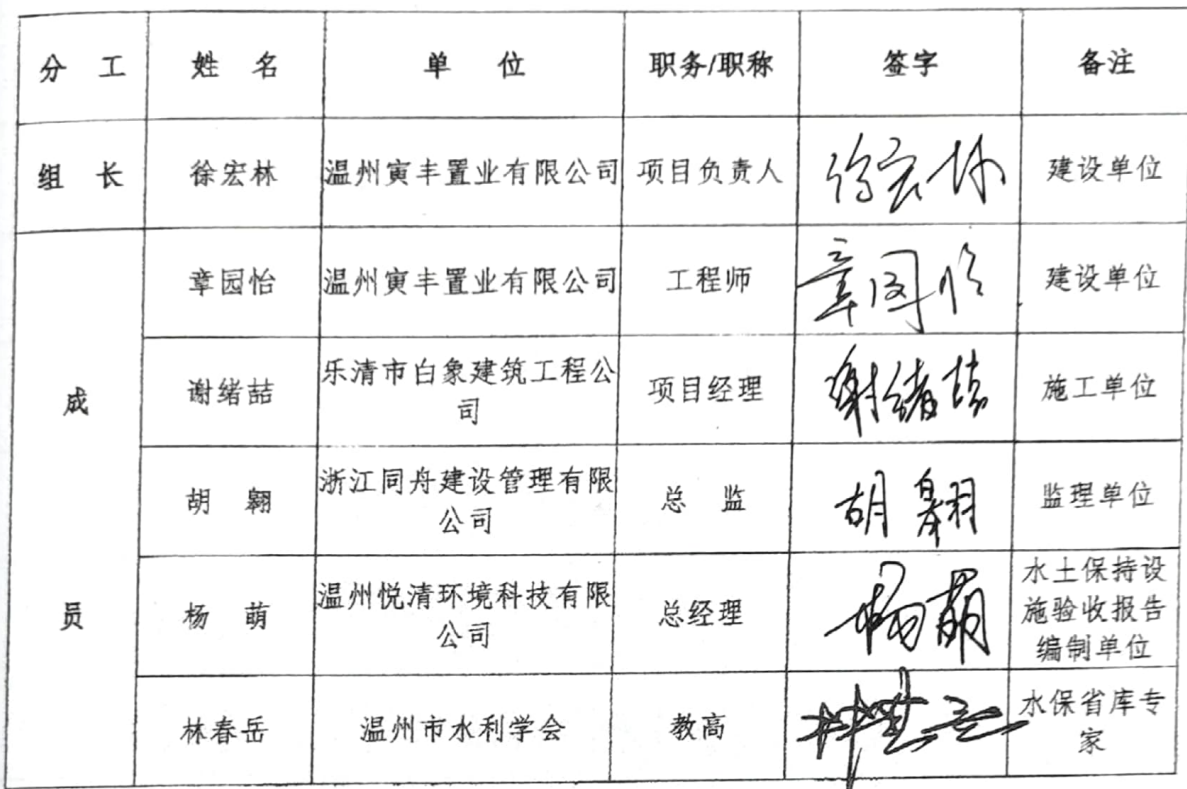 分 工 姓 名 单 位 职务/职称 签字 备注
组 长 徐宏林 温州寅丰置业有限公司 项目负责人 徐宏林 建设单位
成
员
章园怡 温州寅丰置业有限公司 工程师 章园怡 建设单位
谢绪喆 乐清市白象建筑工程公
司 项目经理 谢绪喆 施工单位
胡 翱 浙江同舟建设管理有限
公司 总 监 胡翱 监理单位
杨 萌 温州悦清环境科技有限
公司 总经理 杨萌 水土保持设
施验收报告
编制单位
林春岳 温州市水利学会 教高 水保省库专
家